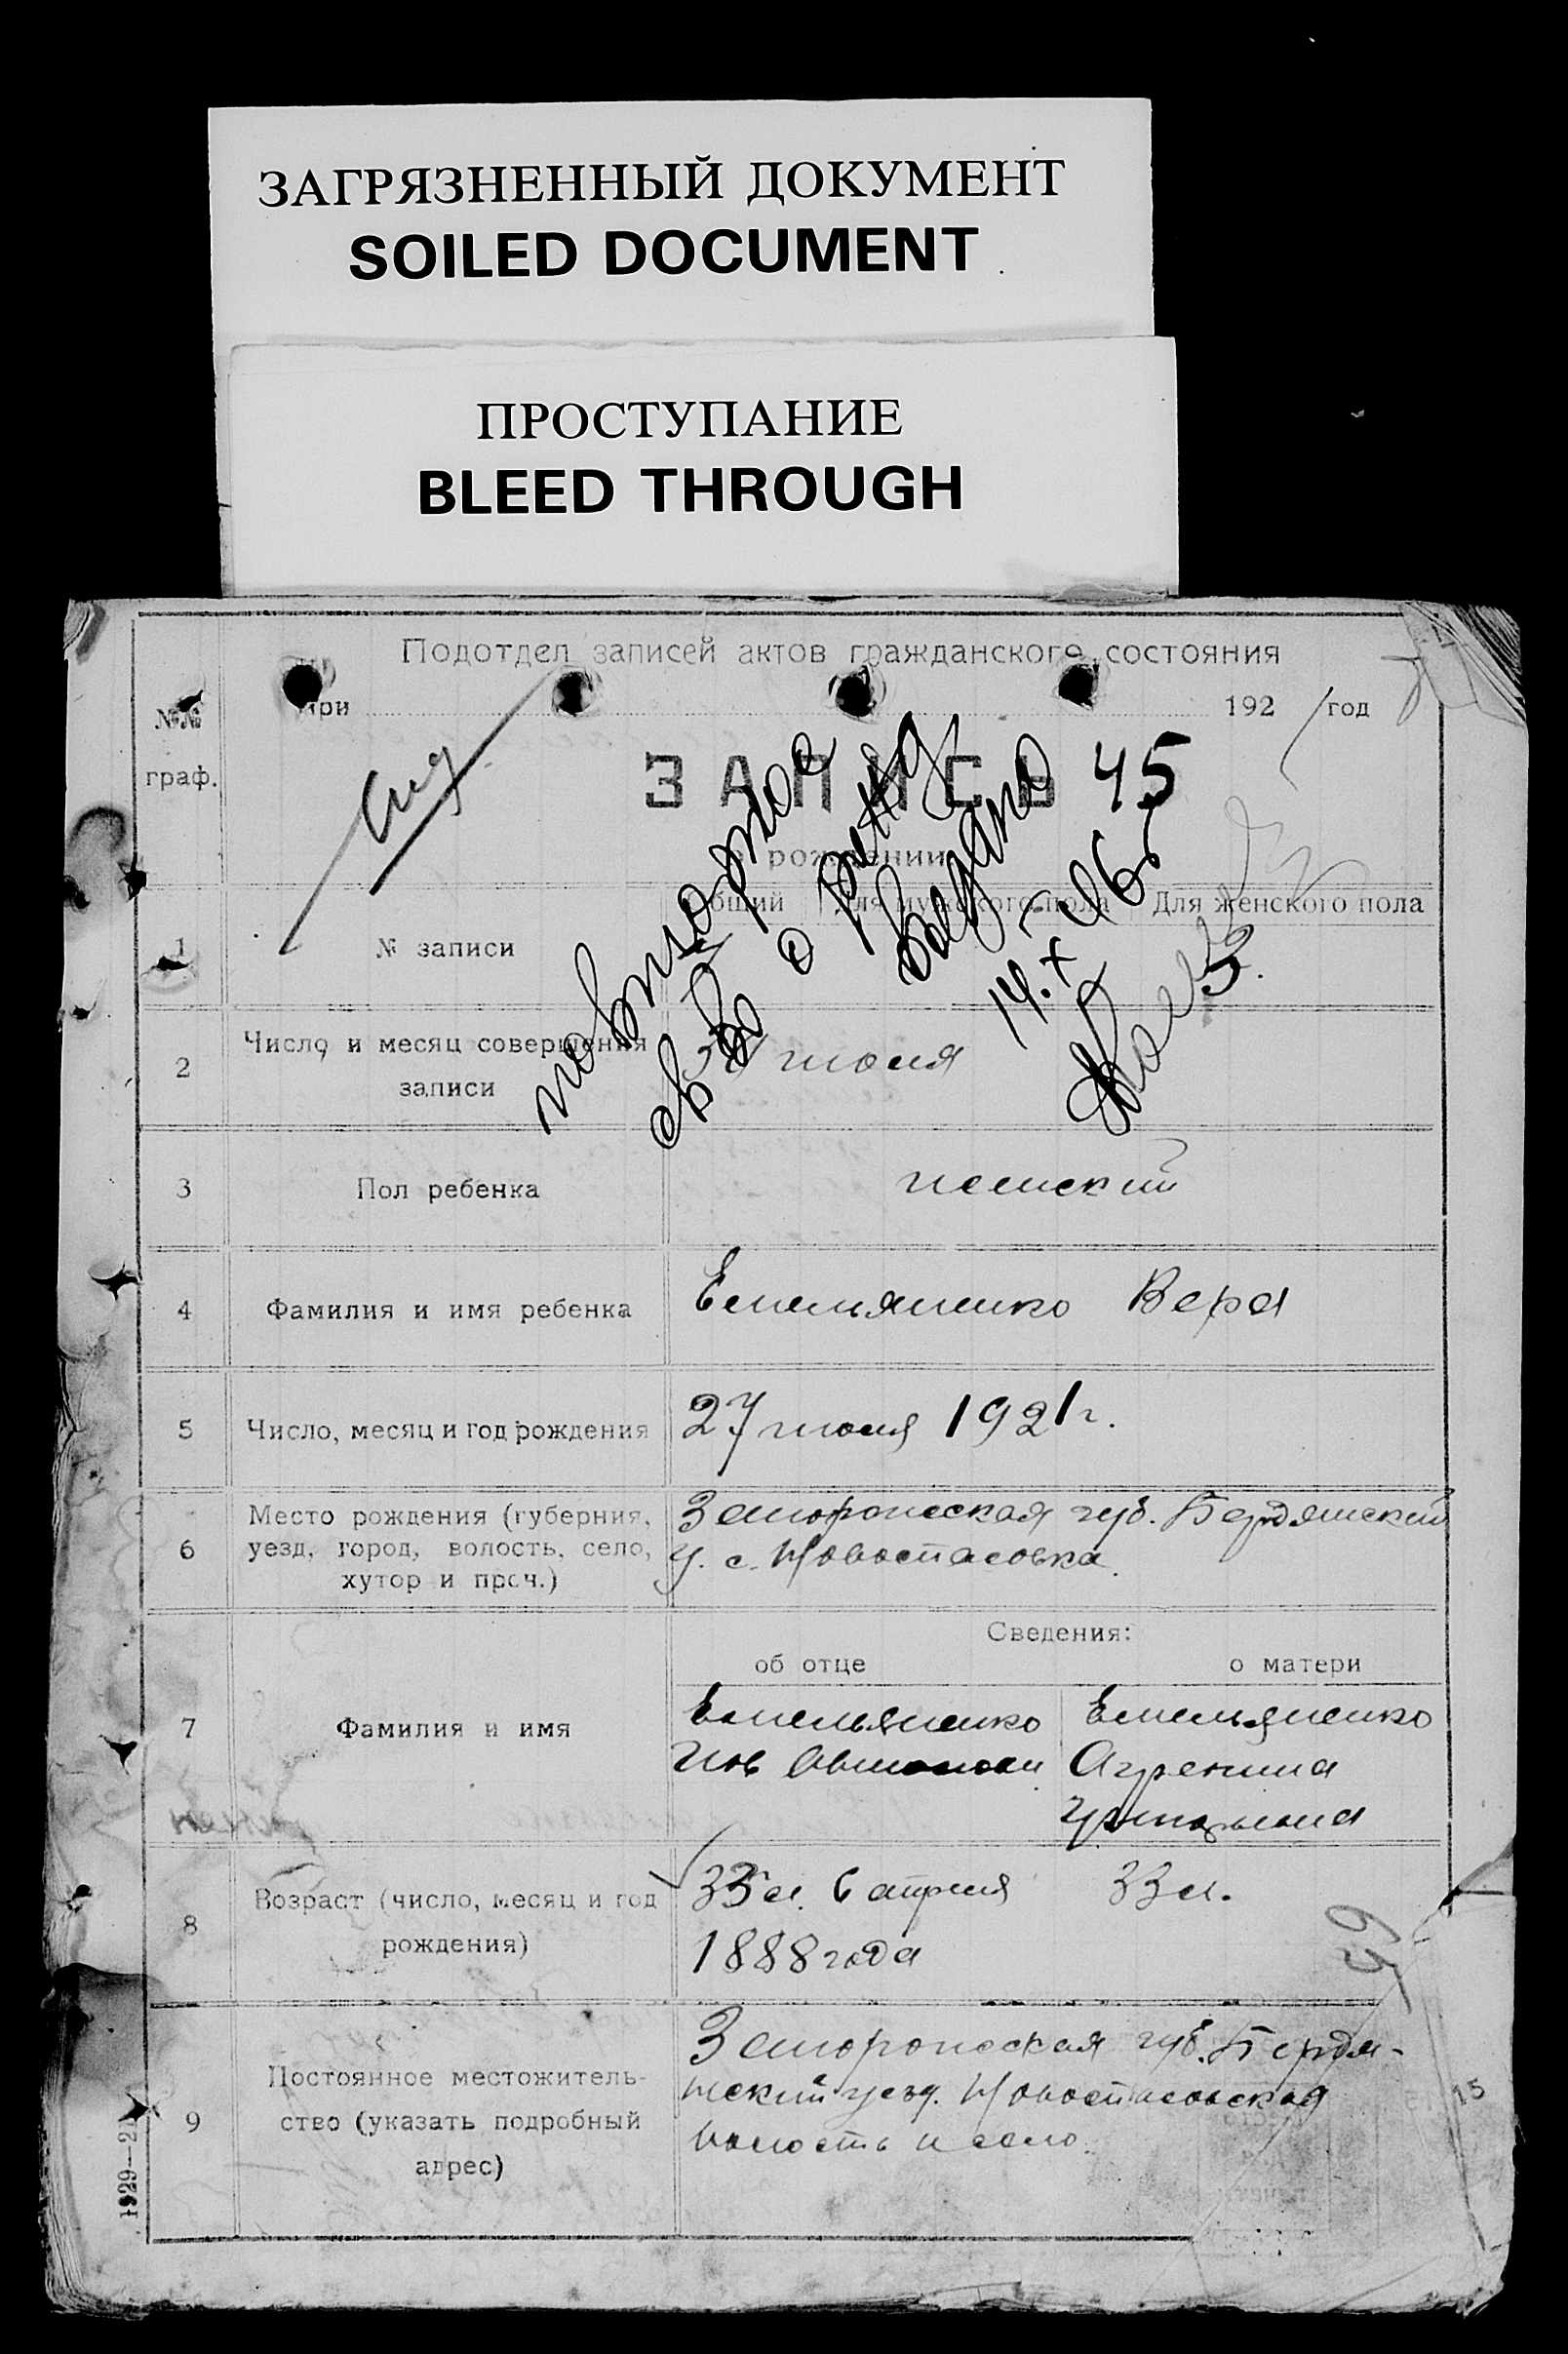 ЗАГРЯЗНЕННЫЙ ДОКУМЕНТ
SOILED DOCUMENT
ПРОСТУПАНИЕ
BLEED THROUGH
Подотдел записей актов гражданского состояния
при 192 / год
№№
граф.
ЗАПИСЬ 45
о рождении
повторное
св-во о рожд
выдано
14.X-
Общий Для мужского пола Для женского пола
1 № записи
2 Число и месяц совершения
записи
июля
3 Пол ребенка женский
4 Фамилия и имя ребенка Емельяненко Вера
5 Число, месяц и год рождения 27 июля 1921 г.
6 Место рождения (губерния,
уезд, город, волость, село,
хутор и проч.)
Запорожская губ. Бердянский
у. с. Новоспасовка
Сведения:
об отце о матери
7 Фамилия и имя
Емельяненко Емельяненко
Иов Агрепина
8 Возраст (число, месяц и год
рождения)
33 л. 6 апреля 33 л.
1888 года
9 Постоянное местожитель-
ство (указать подробный
адрес)
Запорожская губ. Бердя-
нский уезд. Новоспасовская
волость и село.
15